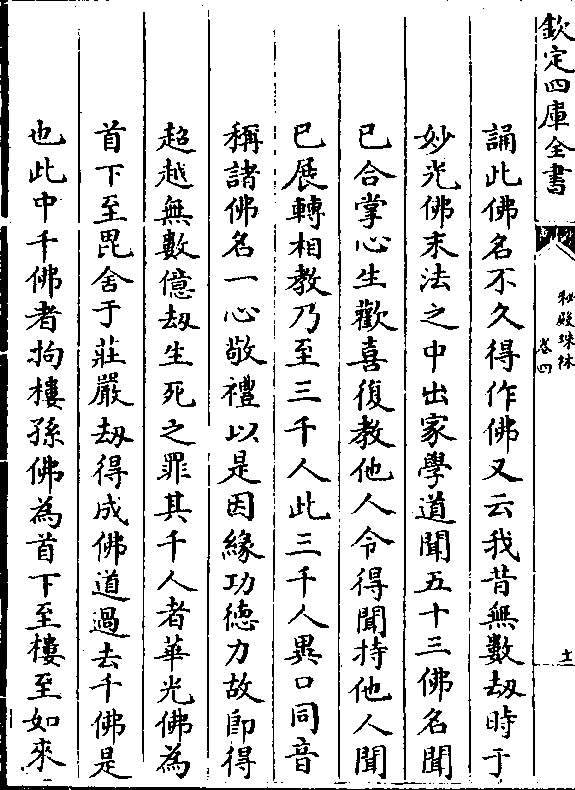 欽定四庫全書
秘殿珠林
卷四
十一
誦此佛名不久得作佛又云我昔無數刼時于
妙光佛末法之中出家學道聞五十三佛名聞
已合掌心生歡喜復教他人令得聞持他人聞
已展轉相教乃至三千人此三千人異口同音
稱諸佛名一心敬禮以是因緣功徳力故即得
超越無數億刼生死之罪其千人者華光佛為
首下至毘舍于莊嚴刼得成佛道過去千佛是
也此中千佛者拘樓孫佛為首下至樓至如來